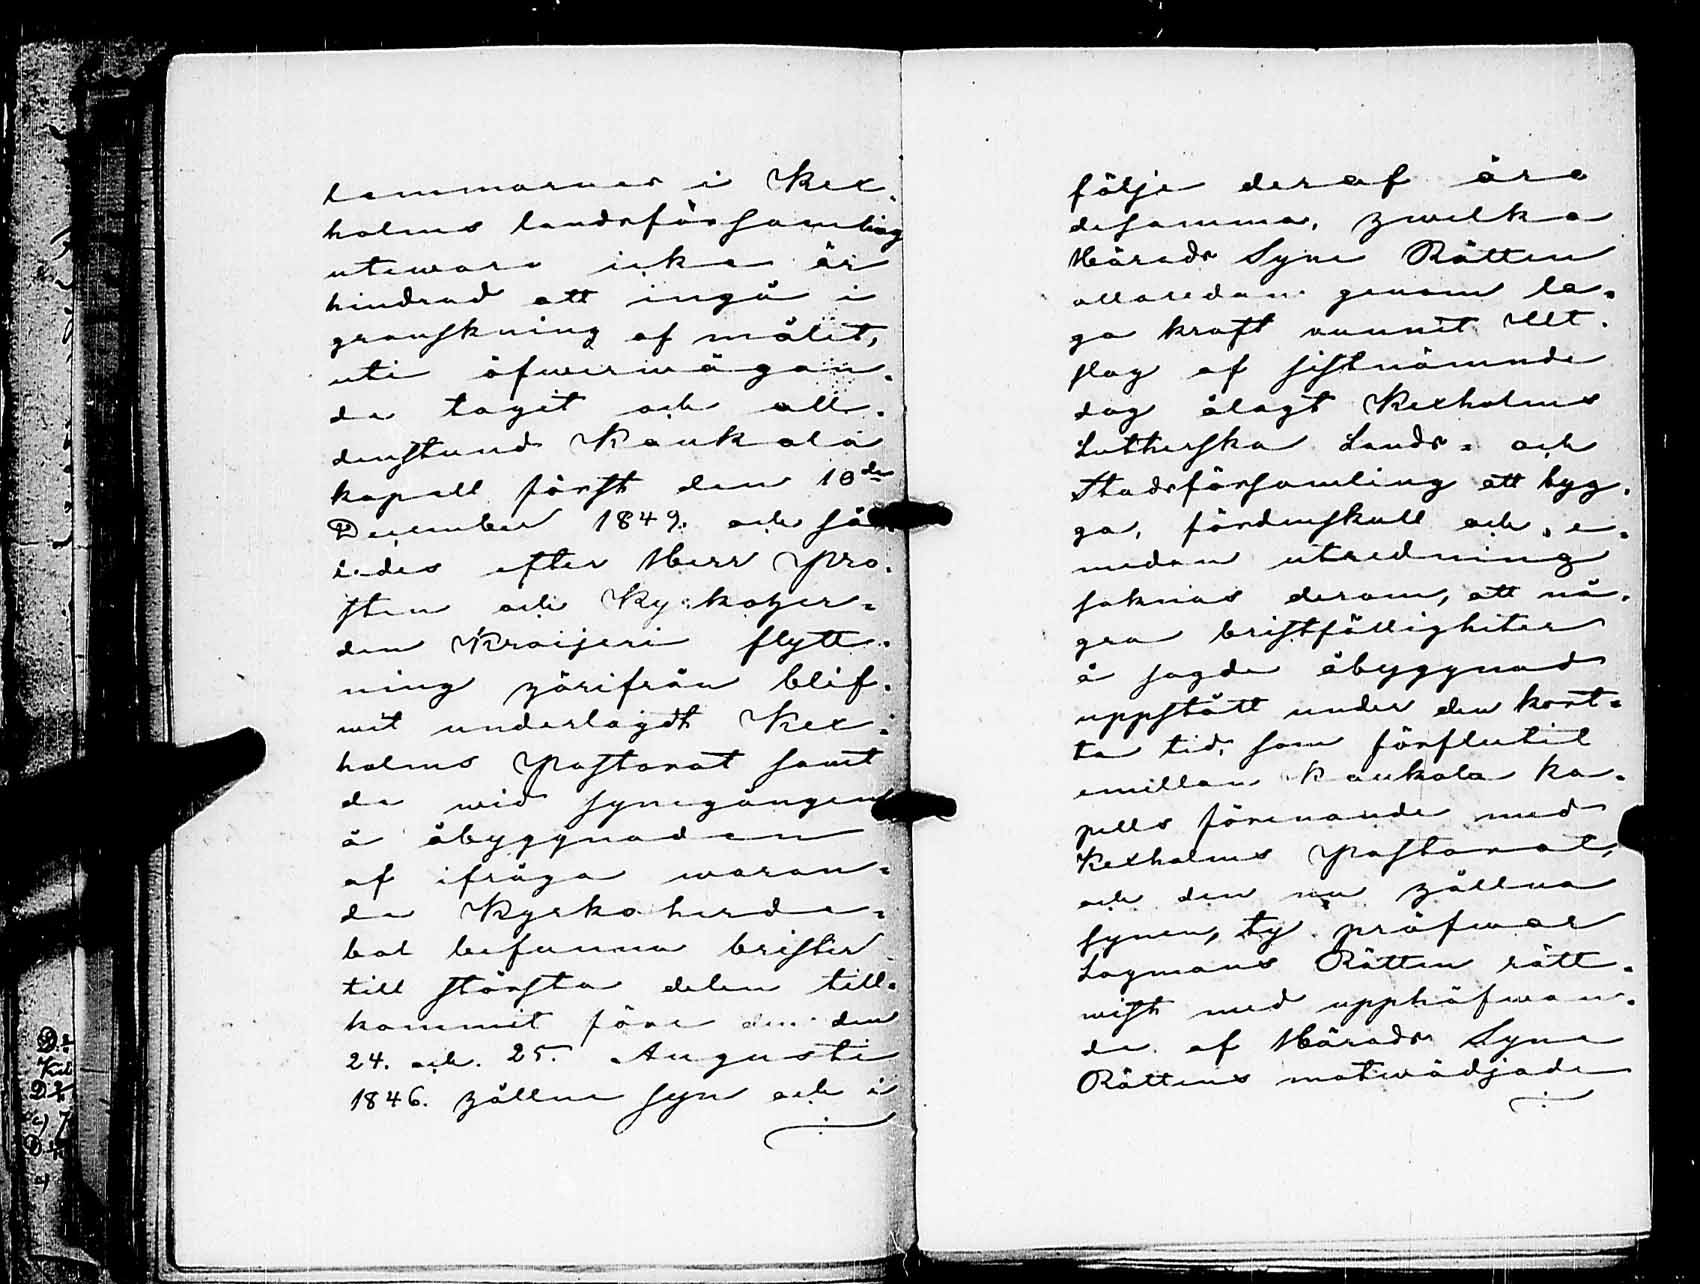 lemmarnes i Kex¬
holms landsförsamling
utewaro icke är
hindrad att ingå i
granskning af målet,
uti öfwerwägan¬
de tagit och all¬
denstund Kaukola
kapell först den 10de
December 1849. och så¬
ledes efter Herr Pro¬
sten och Kyrkoher¬
den Kroijeri flytt¬
ning härifrån blif¬
wit underlagdt Kex¬
holms Pastorat samt
de wid synegången
å åbyggnaden
af ifråga waran¬
de Kyrkoherde¬
bol befunna brister
till största delen till¬
kommit före den den
24. och. 25. Augusti
1846. hållne syn och i
följe deraf äro
desamma, hwilka
Härads Syne Rätten
allaredan genom la¬
ga kraft vunnit Ut¬
slag af sistnämnde
dag ålagt Kexholms
Lutherska Lands- och
Stadsförsamling att byg¬
ga, fördenskull och, e¬
medan utredning
saknas derom, att nå¬
gra bristfälligheter
å sagde åbyggnad
uppstått under den kort¬
ta tid, som förflutit
emillan Kaukola ka¬
pells förenande med
Kexholms Pastorat,
och den nu hållna
synen, ty pröfwar
Lagmans Rätten rätt¬
wist med upphäfwan¬
de af Härads Syne
Rättens motwädjade